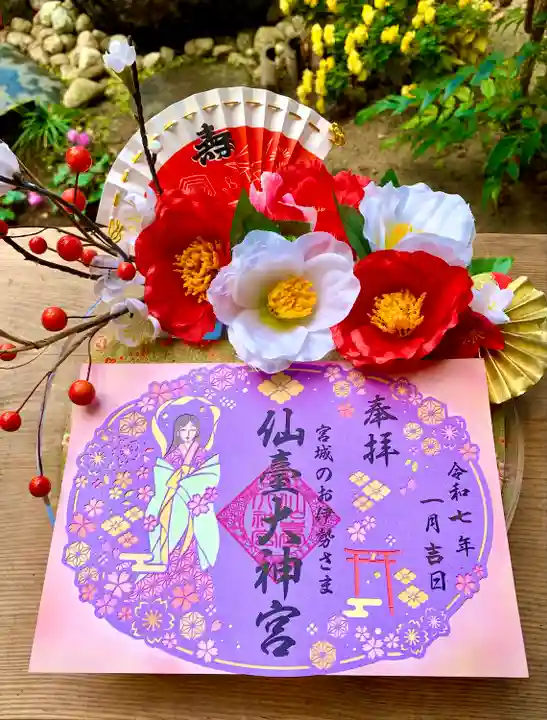 壽
奉拝
令和七年
一月吉日
宮城のお伊勢さま
仙臺大神宮